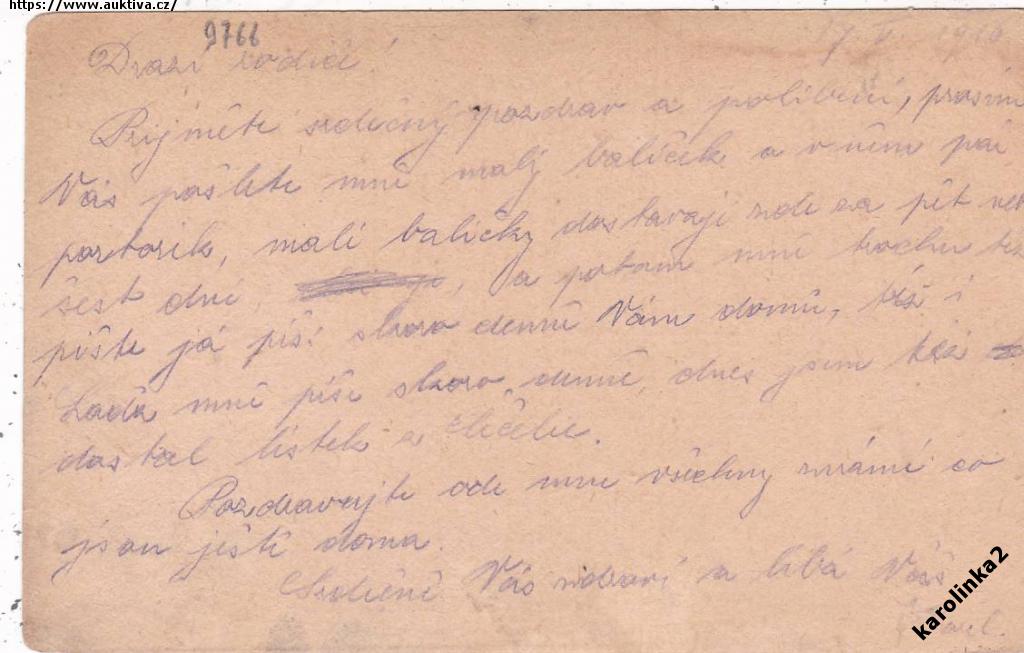 https://www.auktiva.cz/
9766
17. V. 1916
Drazí rodiče!
Prijměte srdečný pozdrav a políbení, prosím
Vás pošlete mně malý balíček a v něm pár
portorik, malí balíčky dostavají zde za pět neb
šest dní, a potom mně trochu též
pište já píši skoro denně Vám domů, též i
Lada mně píše skoro denně, dnes jsem též
dostal lístek z
Pozdravujte ode mne všechny známé co
jsou ješte doma.
Srdečně Vás zdraví a líbá Váš
karolinka2